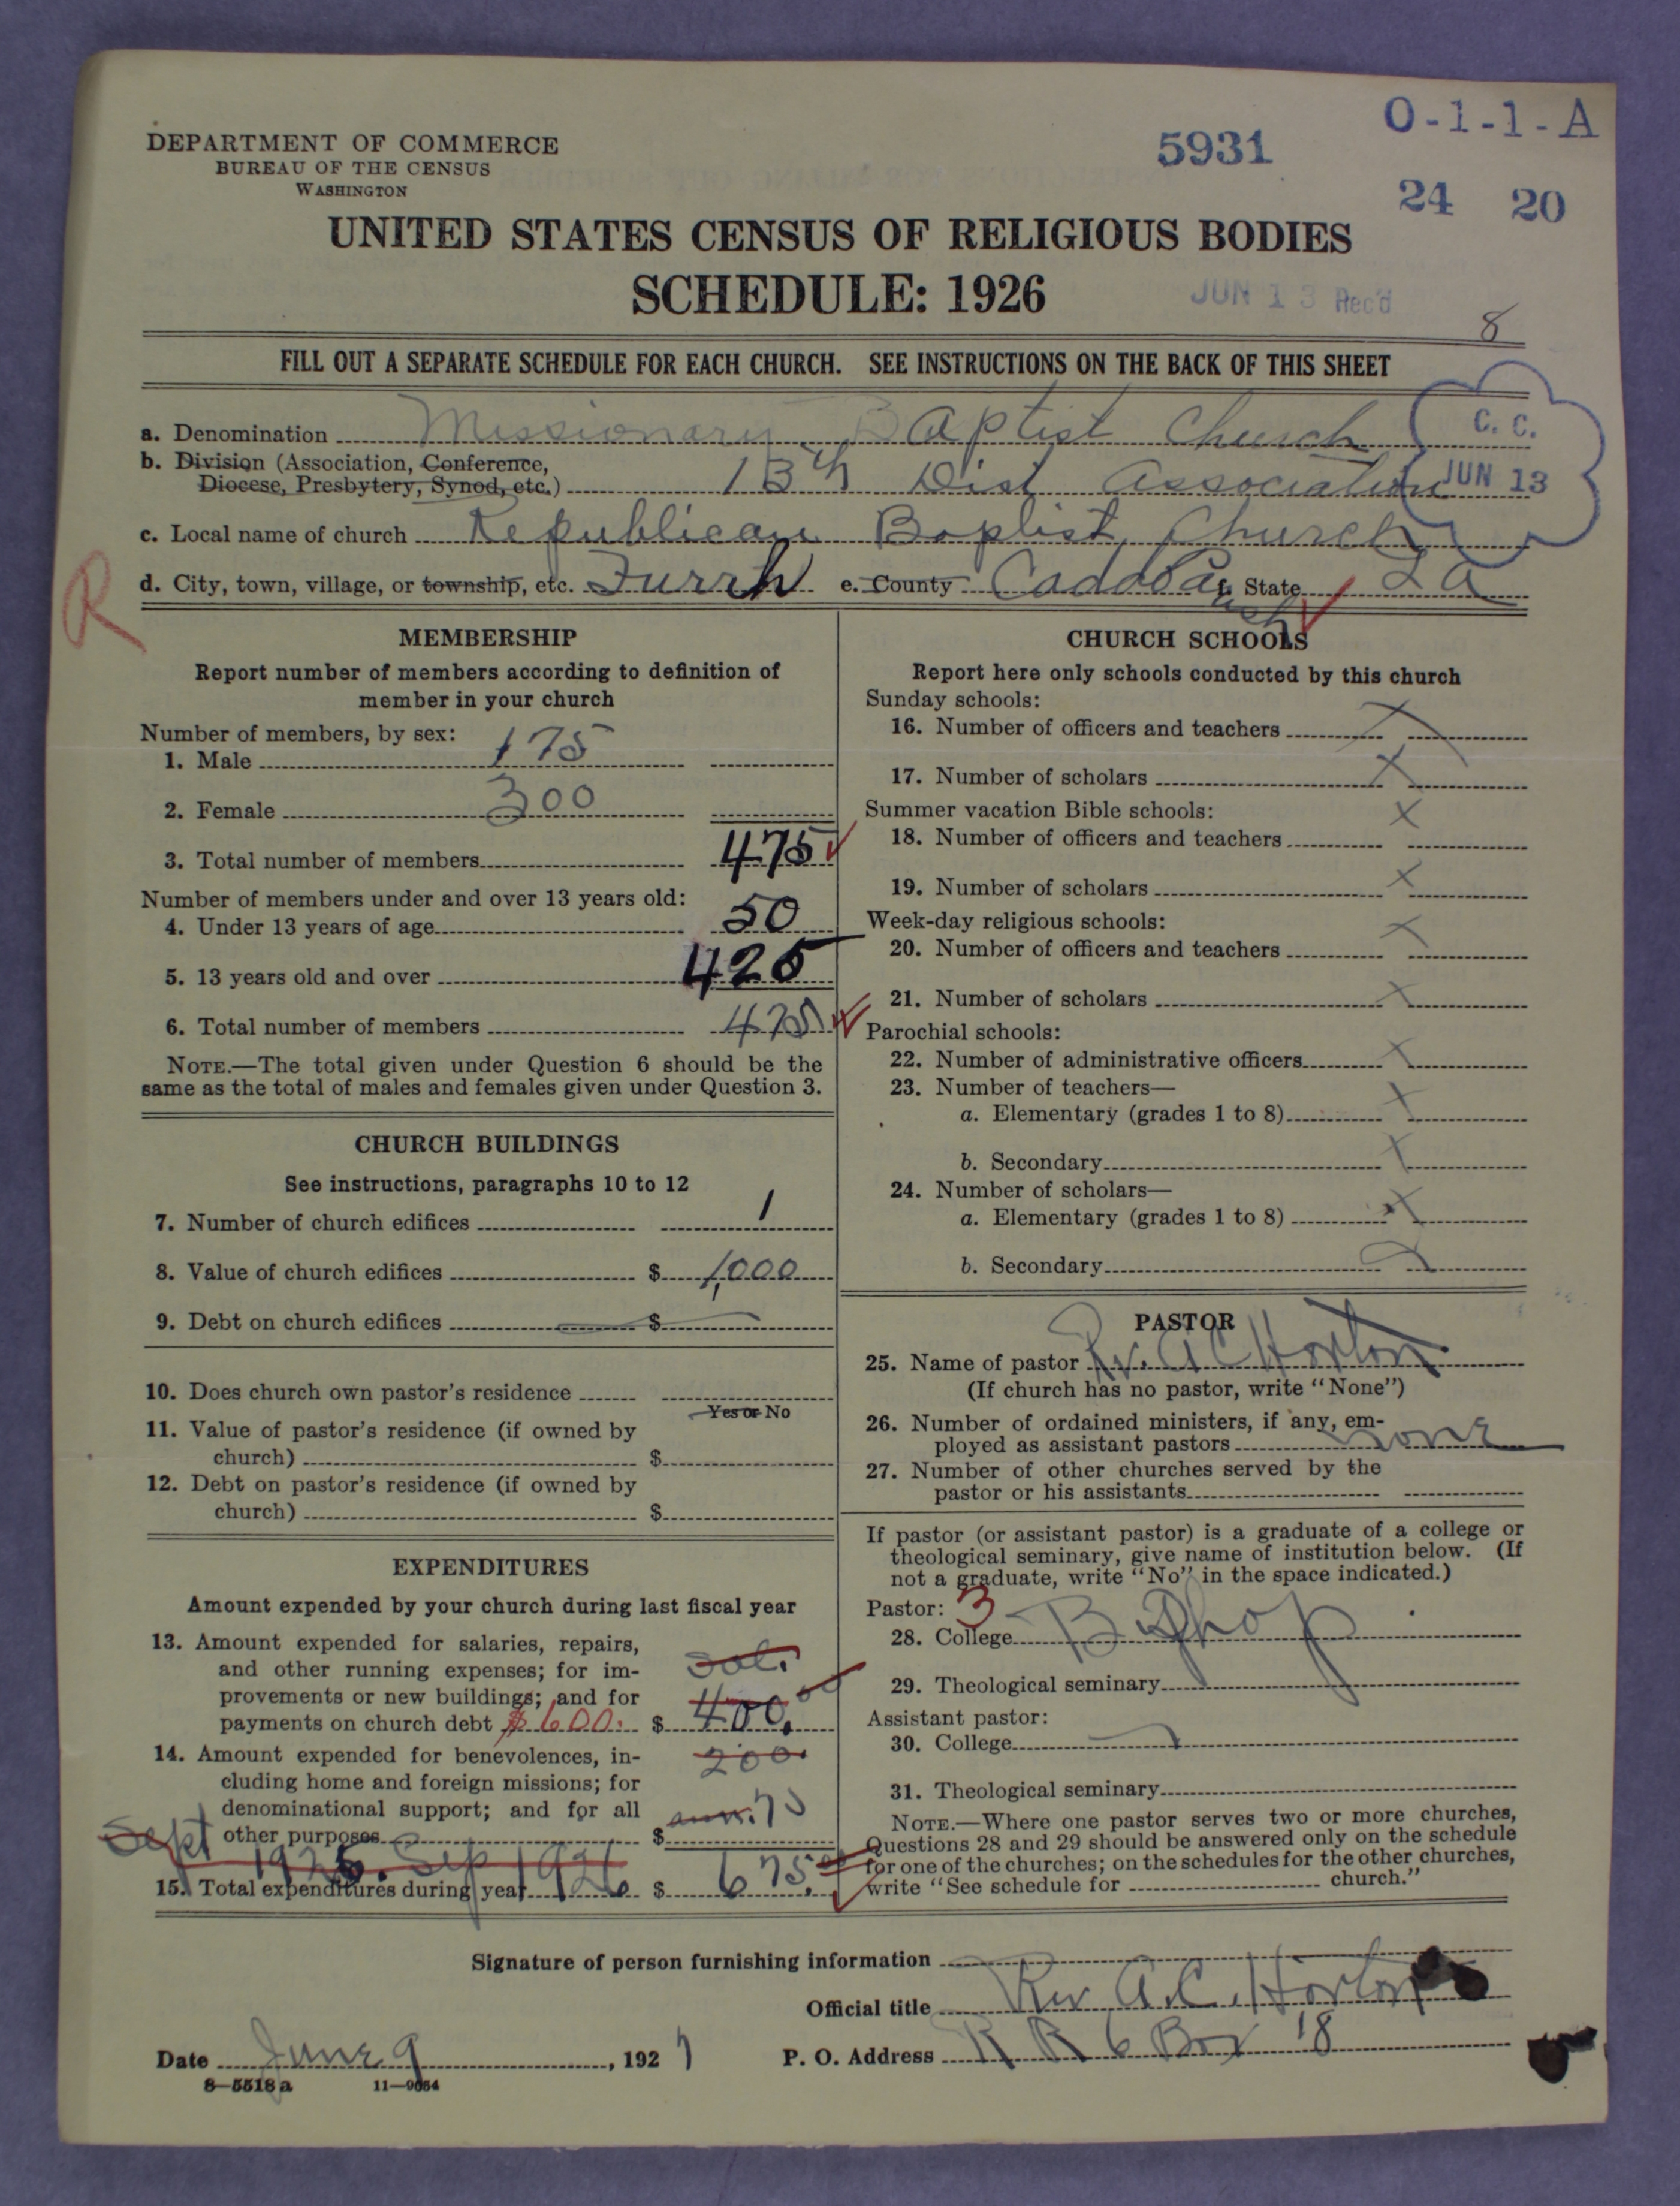 O-1-1-A
DEPARTMENT OF COMMERCE
BUREAU OF THE CENSUS
WASHINGTON
5931
24 20
UNITED STATES CENSUS OF RELIGIOUS BODIES
SCHEDULE: 1926
JUN 13 Rec'd
8
FILL OUT A SEPARATE SCHEDULE FOR EACH CHURCH. SEE INSTRUCTIONS ON THE BACK OF THIS SHEET
a. Denomination Missionary Baptist Church
C. C.
b. Division (Association, Conference,
Diocese, Presbytery, Synod, etc.) 13th Dist Association
JUN 13
c. Local name of church Republican Baptist Church
R
d. City, town, village, or township, etc. Furrh e. County Caddo Parish f. State La
MEMBERSHIP
Report number of members according to definition of
member in your church
Number of members, by sex:
1. Male 175
2. Female 300
3. Total number of members 475
Number of members under and over 13 years old:
4. Under 13 years of age 50
5. 13 years old and over 425
6. Total number of members 475
NOTE.—The total given under Question 6 should be the
same as the total of males and females given under Question 3.
CHURCH BUILDINGS
See instructions, paragraphs 10 to 12
7. Number of church edifices 1
8. Value of church edifices $ 1,000
9. Debt on church edifices $
10. Does church own pastor's residence
Yes or No
11. Value of pastor's residence (if owned by
church) $
12. Debt on pastor's residence (if owned by
church) $
EXPENDITURES
Amount expended by your church during last fiscal year
13. Amount expended for salaries, repairs,
and other running expenses; for im-
provements or new buildings; and for
payments on church debt $600. $ 400.00
14. Amount expended for benevolences, in-
200.
cluding home and foreign missions; for
denominational support; and for all
75
other purposes $
Sept 1925. Sep 1926
15. Total expenditures during year $ 675.00
CHURCH SCHOOLS
Report here only schools conducted by this church
Sunday schools:
16. Number of officers and teachers X
17. Number of scholars X
Summer vacation Bible schools:
18. Number of officers and teachers X
19. Number of scholars X
Week-day religious schools:
20. Number of officers and teachers X
21. Number of scholars X
Parochial schools:
22. Number of administrative officers X
23. Number of teachers—
a. Elementary (grades 1 to 8) X
b. Secondary X
24. Number of scholars—
a. Elementary (grades 1 to 8) X
b. Secondary
PASTOR
25. Name of pastor Rv. A C Horton
(If church has no pastor, write "None")
26. Number of ordained ministers, if any, em-
ployed as assistant pastors none
27. Number of other churches served by the
pastor or his assistants
If pastor (or assistant pastor) is a graduate of a college or
theological seminary, give name of institution below. (If
not a graduate, write "No" in the space indicated.)
Pastor: 3
28. College Bishop
29. Theological seminary
Assistant pastor:
30. College
31. Theological seminary
NOTE.—Where one pastor serves two or more churches,
Questions 28 and 29 should be answered only on the schedule
for one of the churches; on the schedules for the other churches,
write "See schedule for church."
Signature of person furnishing information
Official title Rev A. C. Horton
Date June 9, 1927 P. O. Address R R 6 Box 18
8-5518 a 11-9064